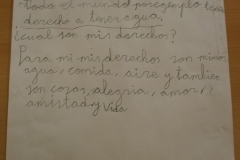 Todo el mundo por ejemplo tenía
derecho a tener agua.
¿cual son mis derechos?
Para mi mis derechos son
agua, comida, aire y también
son cosas, alegria, amor,
amistad y vida